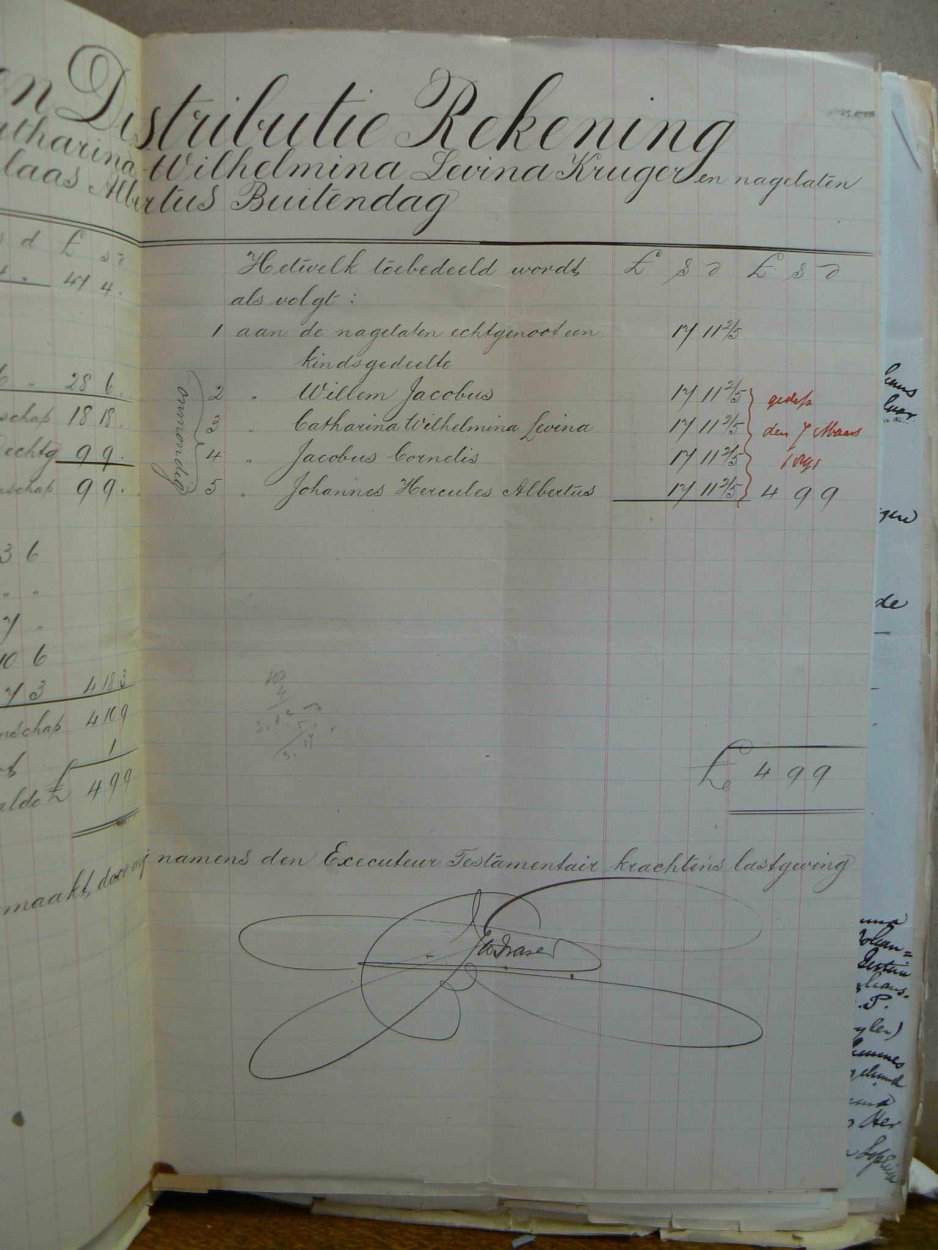 n Distributie Rekening
atharina Wilhelmina Levina Kruger en nagelaten
laas Albertus Buitendag
d £ s d
47 4
28 6
schap 18 18
echtg 9 9
nschap 9 9
3 6
7
10 6
7 3 4 18 3
nschap
1
aldo £ 4 9 9
maakt, door mij namens den Executeur Testamentair krachtens lastgeving
Hetwelk toebedeeld wordt £ s d £ s d
als volgt :
1 aan de nagelaten echtgenoot een 17 11 2/5
kindsgedeelte
2 " Willem Jacobus 17 11 2/5
3 " Catharina Wilhelmina Levina 17 11 2/5 den 7 Maart
4 " Jacobus Cornelis 17 11 2/5
5 " Johannes Hercules Albertus 17 11 2/5 4 9 9
minderjarig
£ 4 9 9
Fraser